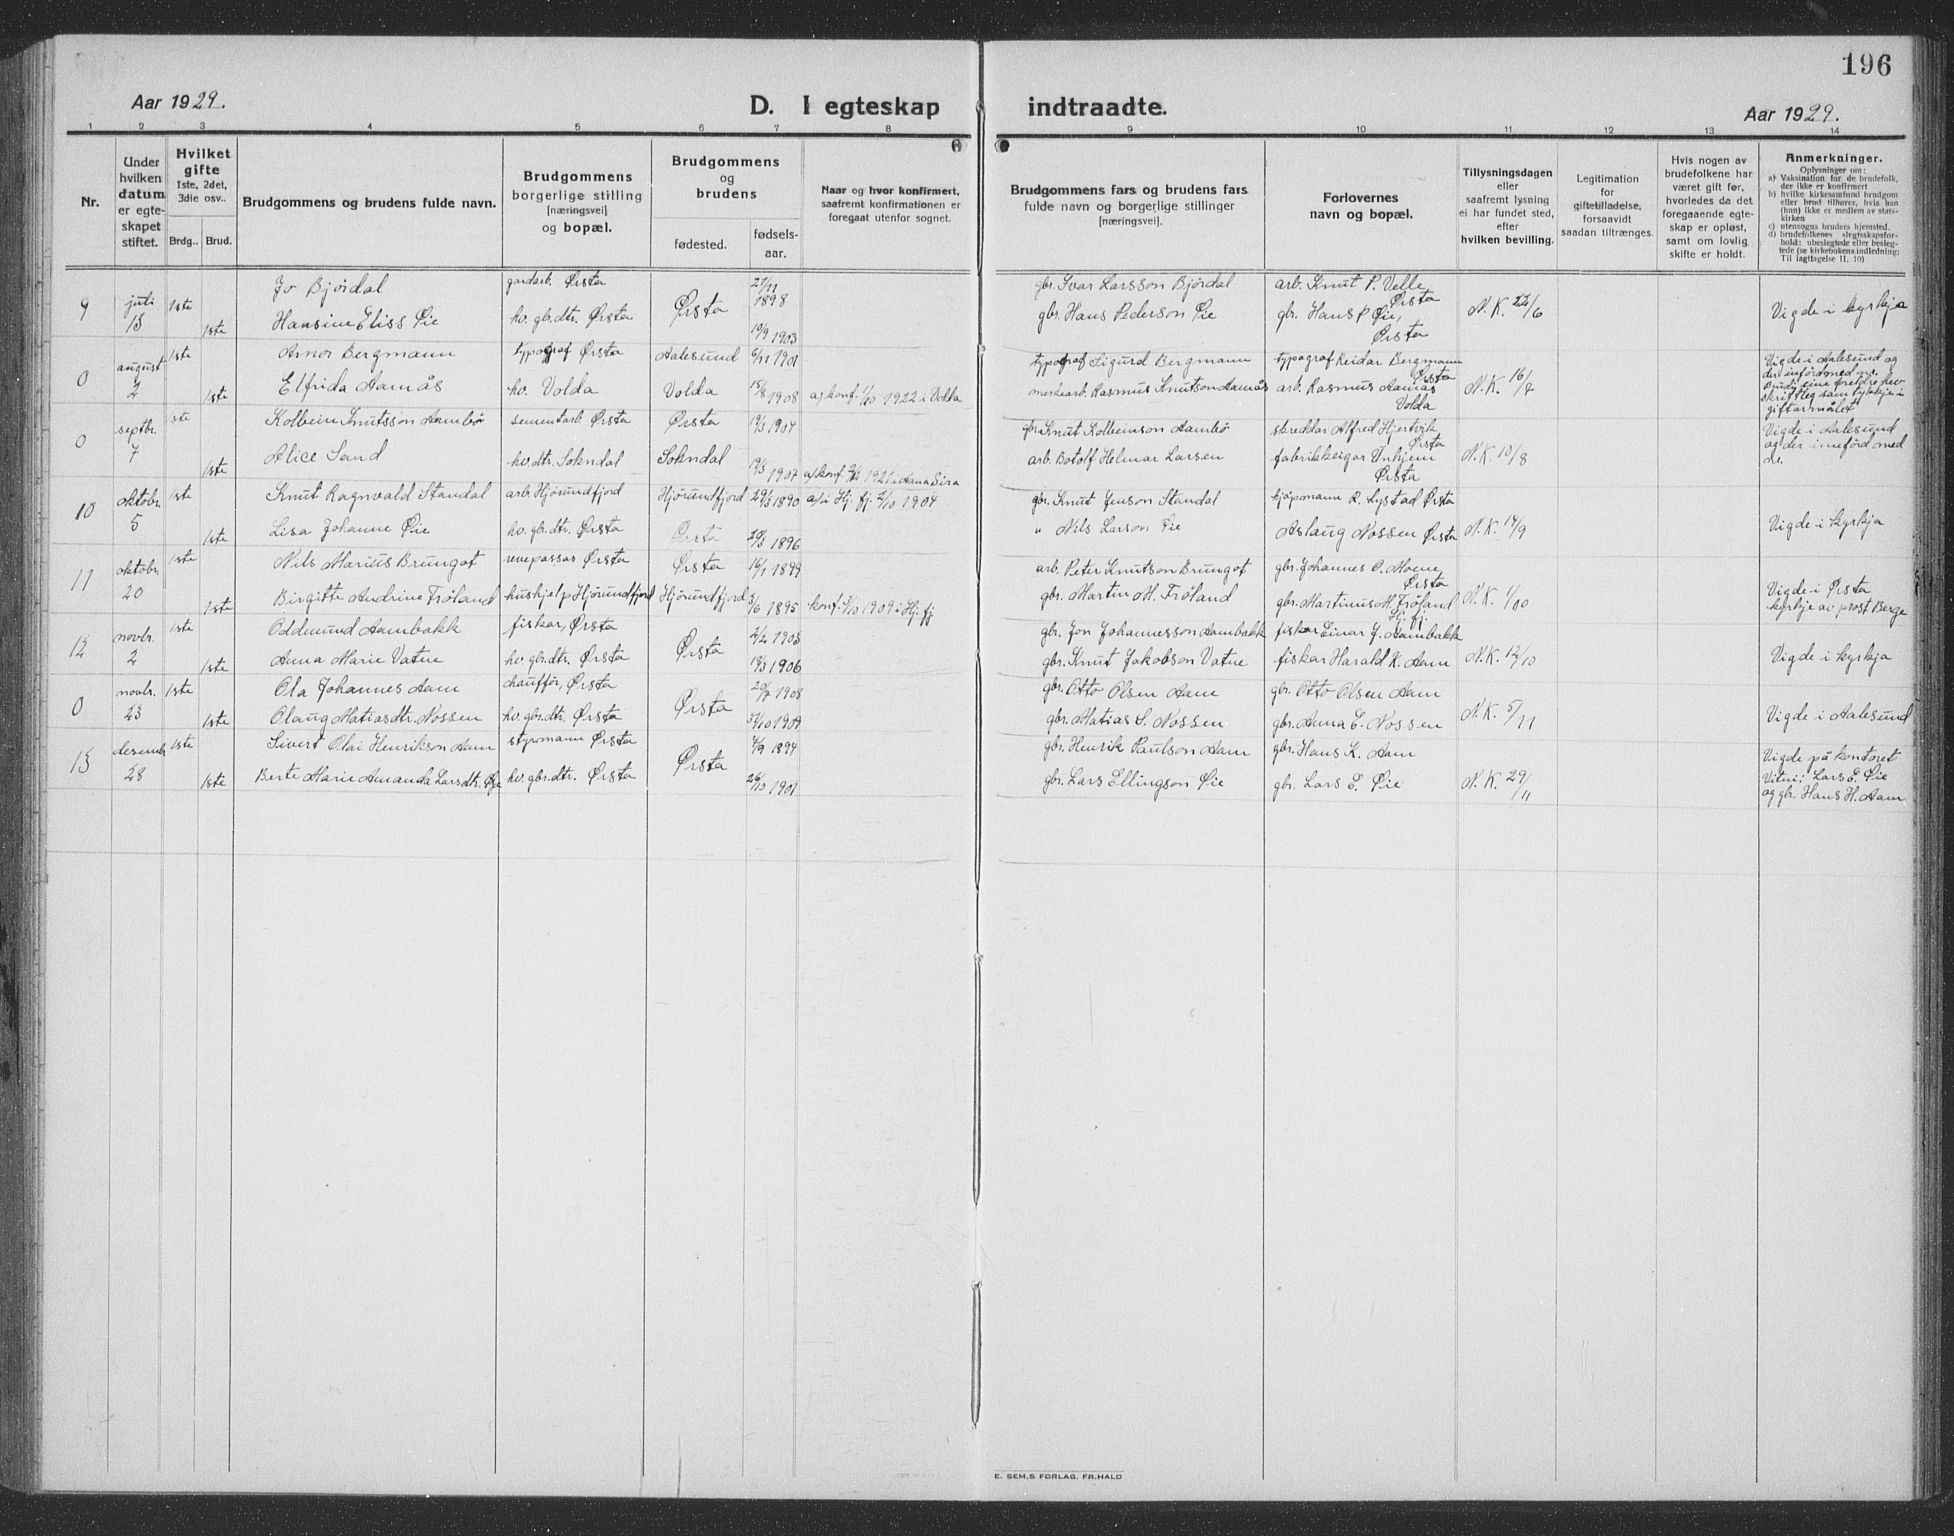 196
Aar 1929.
D. I egteskap indtraadte.
Aar 1929.
1 2 3 4 5 6 7 8 9 10 11 12 13 14
Nr.
Under hvilken datum er egteskapet stiftet.
Hvilket gifte 1ste, 2det, 3die osv..
Brdg.. Brud.
Brudgommens og brudens fulde navn.
Brudgommens borgerlige stilling [næringsvei] og bopæl.
Brudgommens og brudens
fødested.
fødselsaar.
Naar og hvor konfirmert, saafremt konfirmationen er foregaat utenfor sognet.
Brudgommens fars og brudens fars fulde navn og borgerlige stillinger [næringsvei].
Forlovernes navn og bopæl.
Tillysningsdagen eller saafremt lysning ei har fundet sted, efter hvilken bevilling.
Legitimation for giftetilladelse, forsaavidt saadan tiltrænges.
Hvis nogen av brudefolkene har været gift før, hvorledes da det foregaaende egteskap er opløst, samt om lovlig skifte er holdt.
Anmerkninger.
Oplysninger om:
a) Vaksination for de brudefolk, der ikke er konfirmert
b) hvilke kirkesamfund brudgom eller brud tilhører, hvis han (hun) ikke er medlem av statskirken
c) utensogns bruders hjemsted.
d) brudefolkenes slegtsskapsforhold: ubeslegtede eller beslegtede (se kirkebokens indledning: Til iagttagelse II. 10)
9 juli 13 1ste Jo Bjørdal gardarb. Ørsta Ørsta 27/11 1898 gbr. Ivar Larsson Bjørdal arb. Knut P. Velle Ørsta N.K. 22/6 Vigde i kyrkja
1ste Hansine Eliss Øie hv. gb.dtr. Ørsta 19/9 1903 gbr. Hans Pederson Øie gb. Hans P Øie, Ørsta
0 august 2 1ste Arnor Bergmann typograf Ørsta Aalesund 6/11 1901 typograf Sigurd Bergmann typograf Reidar Bergmann Ørsta N.K. 16/7 Vigde i Aalesund og
1ste Elfrida Aamås hv. Volda Volda 15/8 1908 a/konf. 1/10 1922 i Volda merkearb. Rasmus Knutson Aamås arb. Rasmus Aamås Volda
giftarmålet
0 septbr. 7 1ste Kolbein Knutsson Aambø sementarb. Ørsta Ørsta 19/3 1904 gbr Knut Kolbeinson Aambø skreddar Alfred Hjertvik Ørsta N.K. 10/8 Vigde i Aalesund
1ste Alice Sand hv. dtr. Sokndal Sokndal 19/3 1907 a/konf. 1921 i Aana Sira arb. Botolf Helmar Larsen fabrikkeigar Ørsta og der innførd med nr.
10 oktobr. 5 1ste Knut Ragnvald Standal arb. Hjørundfjord Hjørundfjord 29/3 1890 a/i Hj. fj. 2/10 1904 gbr. Knut Jenson Standal kjøpmann R. Lystad Ørsta N.K. 14/9 Vigde i kyrkja
1ste Lisa Johanne Øie hv. gb.dtr. Ørsta Ørsta 20/3 1896 " Nils Larson Øie Aslaug Nossen Ørsta
11 oktobr. 20 1ste Nils Marius Brungot revepassar Ørsta Ørsta 16/1 1899 arb. Peter Knutson Brungot gbr. Johannes O. Moene Ørsta N.K. 1/10 Vigde i Ørsta
1ste Birgitte Andrine Frøland hushjelp Hjørundfjord Hjørundfjord 5/6 1895 konf. 3/10 1909 i Hj. fj gbr. Martin M. Frøland gbr. Martinus M. Frøland Hj. fj. kyrkje av prost Berge
12 novbr. 2 1ste Oddmund Aambakk fiskar, Ørsta Ørsta 2/2 1903 gbr. Jon Johannesson Aambakk fiskar Einar J. Aambakk N.K. 12/10 Vigde i kyrkja
1ste Anna Marie Vatne hv. gb.dtr. Ørsta 19/3 1906 gbr. Knut Jakobson Vatne fiskar Harald K. Aam
0 novbr. 23 1ste Ola Johannes Aam chauffør, Ørsta Ørsta 20/7 1908 gbr. Otto Olsen Aam gbr. Otto Olsen Aam N.K. 5/11 Vigde i Aalesund
1ste Olaug Matiasdtr. Nossen hv. gbr.dtr. Ørsta gbr. Matias S. Nossen gbr. Anna E. Nossen
13 desembr 28 1ste Sivert Olai Henrikson Aam styrmann Ørsta Ørsta 4/9 1894 gbr. Henrik Paulson Aam gbr. Hans K. Aam N.K. 29/11 Vigde på kontoret
1ste Berte Marie Amanda Larsdtr. Øye hv. gbr.dtr. Ørsta 26/10 1901 gbr. Lars Ellingson Øie gbr. Lars E. Øie Vitni: Lars E. Øie
og gbr. Hans H. Aam
E. SEM,S FORLAG, FR.HALD